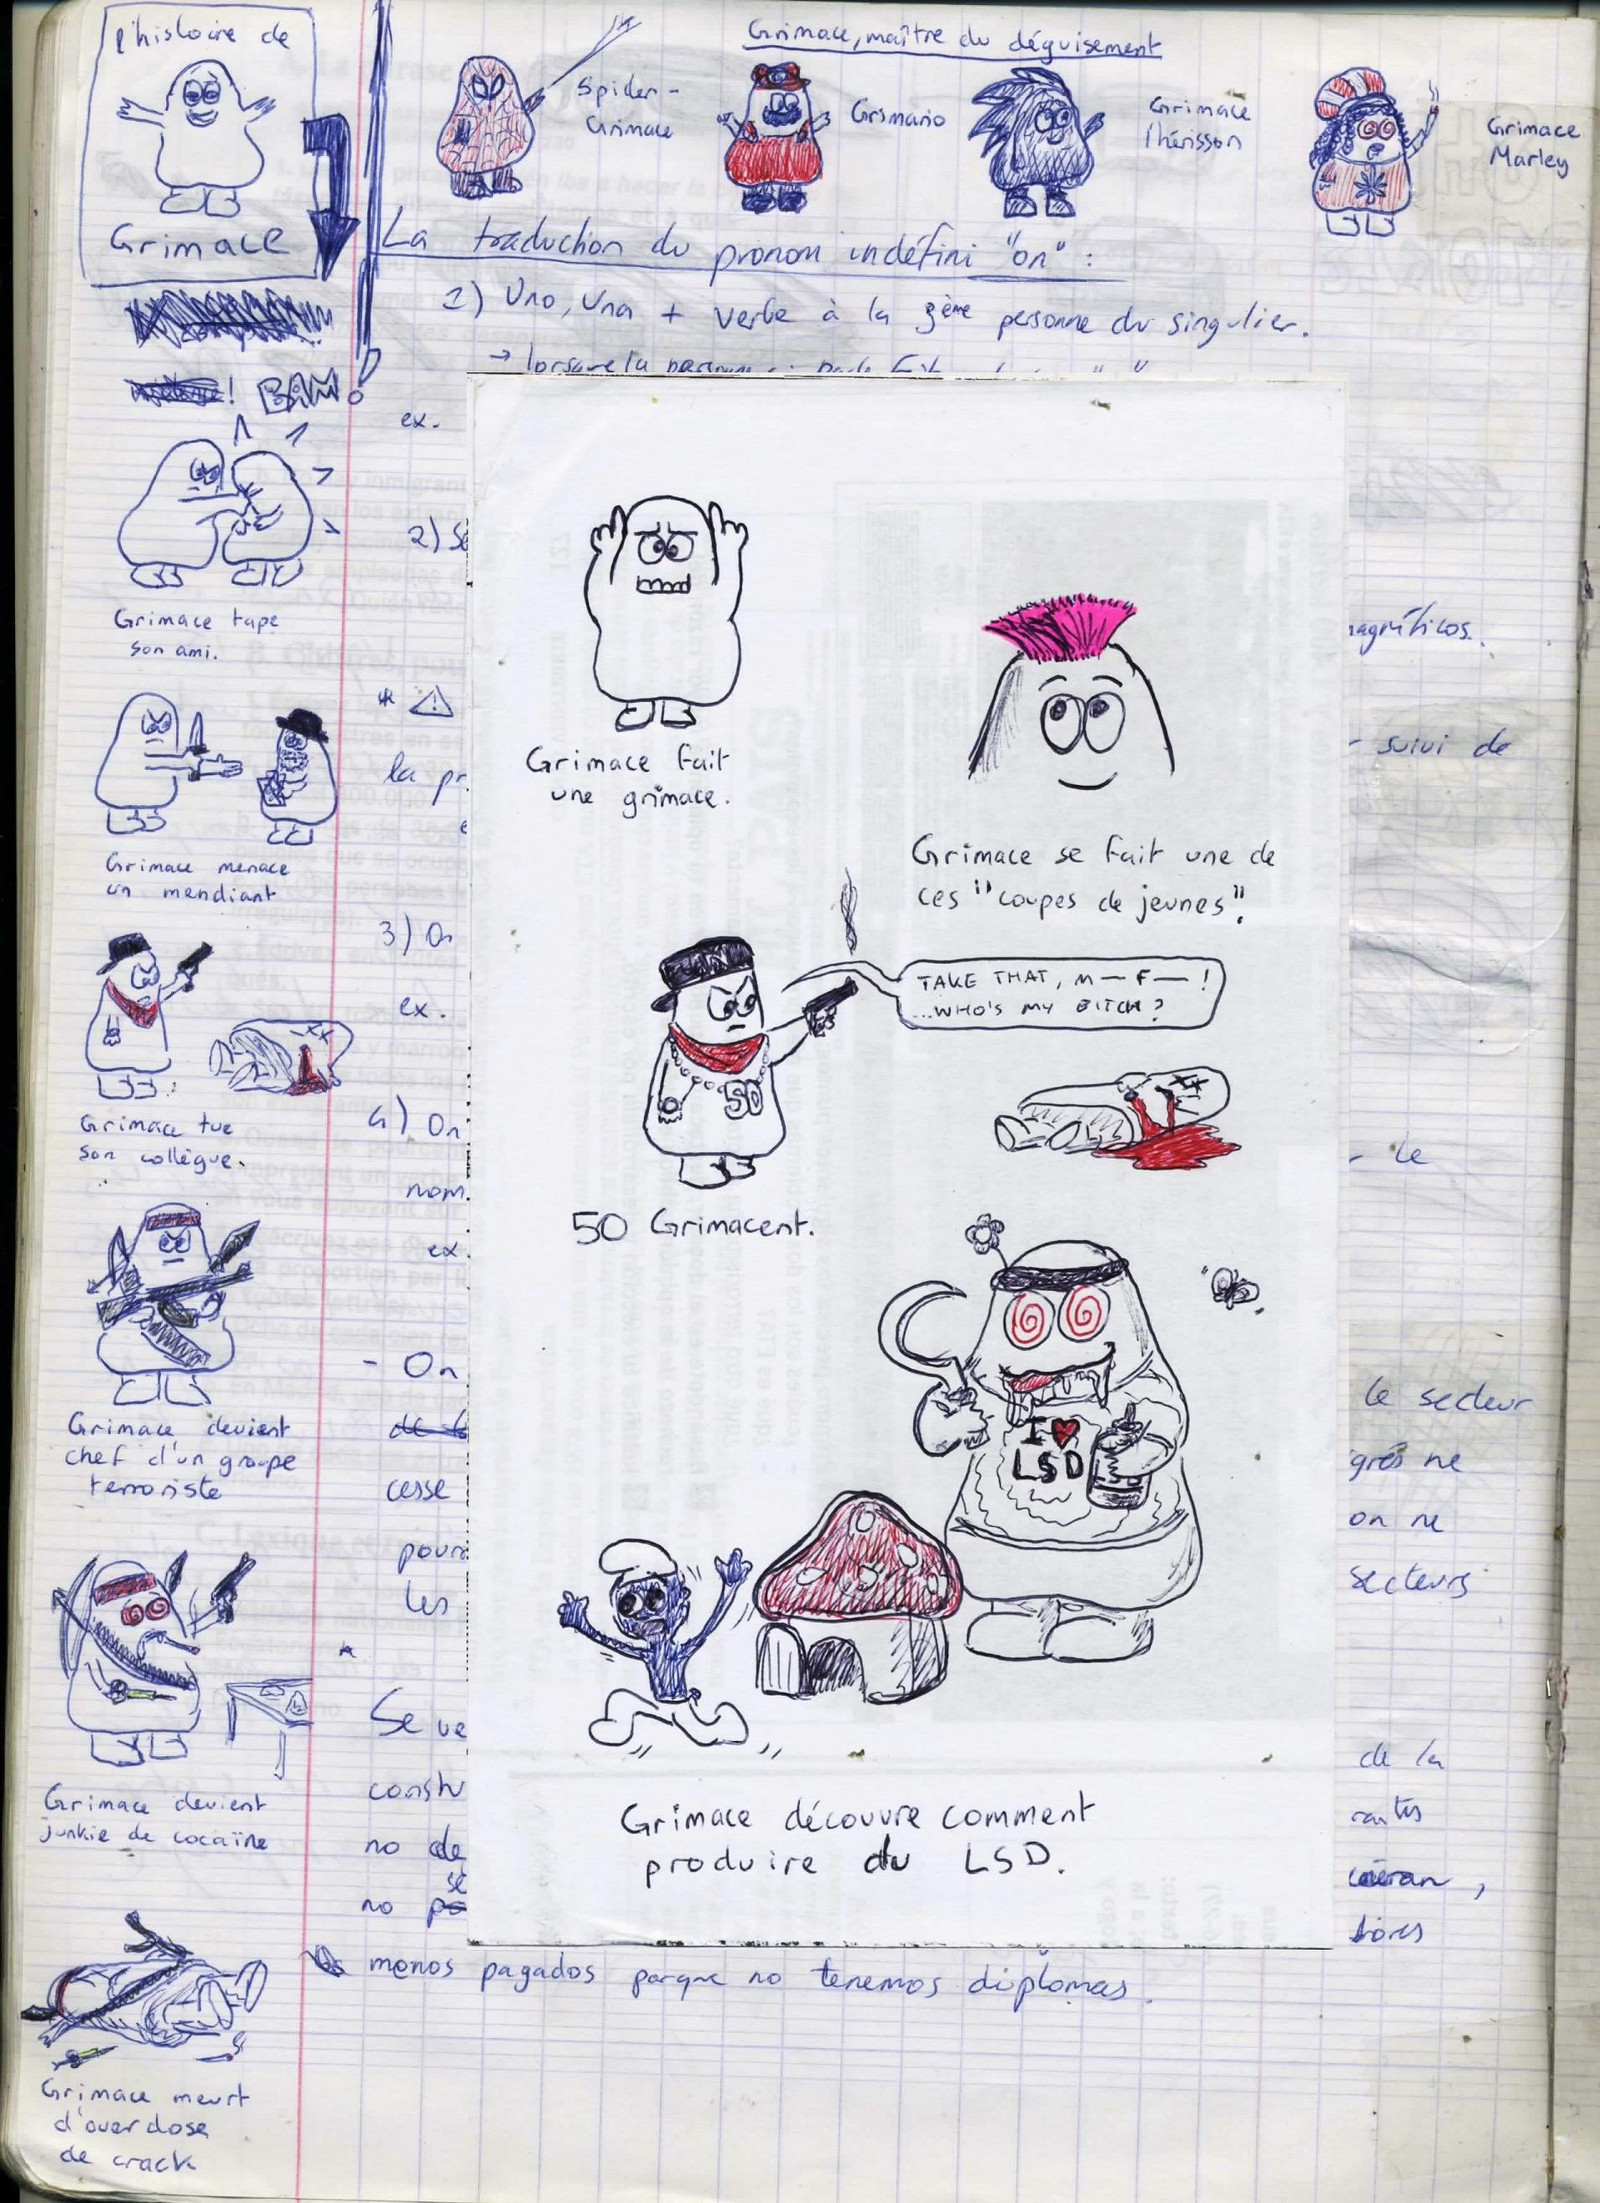 l'histoire de
Grimace
BAM!
Grimace tape
son ami.
Grimace menace
un mendiant
Grimace tue
son collègue.
Grimace devient
chef d'un groupe
terroriste
Grimace devient
junkie de cocaïne
Grimace meurt
d'overdose
de crack
Grimace, maître du déguisement
Spider-
Grimace
Grimario
Grimace
l'hérisson
Grimace
Marley
La traduction du pronom indéfini "on" :
1) Uno, Una + verbe à la 3ème personne du singulier.
→ lorsque la
ex.
2) Se
la pr
3) On
ex.
4) On
nom
ex.
- On
cesse
pour
Les
Se ve
constr
no de
se
no
menos pagados porque no tenemos diplomas.
magníficos.
suivi de
le
le secteur
grés ne
on ne
secteurs
de la
Grimace fait
une grimace.
Grimace se fait une de
ces "coupes de jeunes".
TAKE THAT, M— F— !
...WHO'S MY BITCH?
50
50 Grimacent.
I ♥
LSD
Grimace découvre comment
produire du LSD.